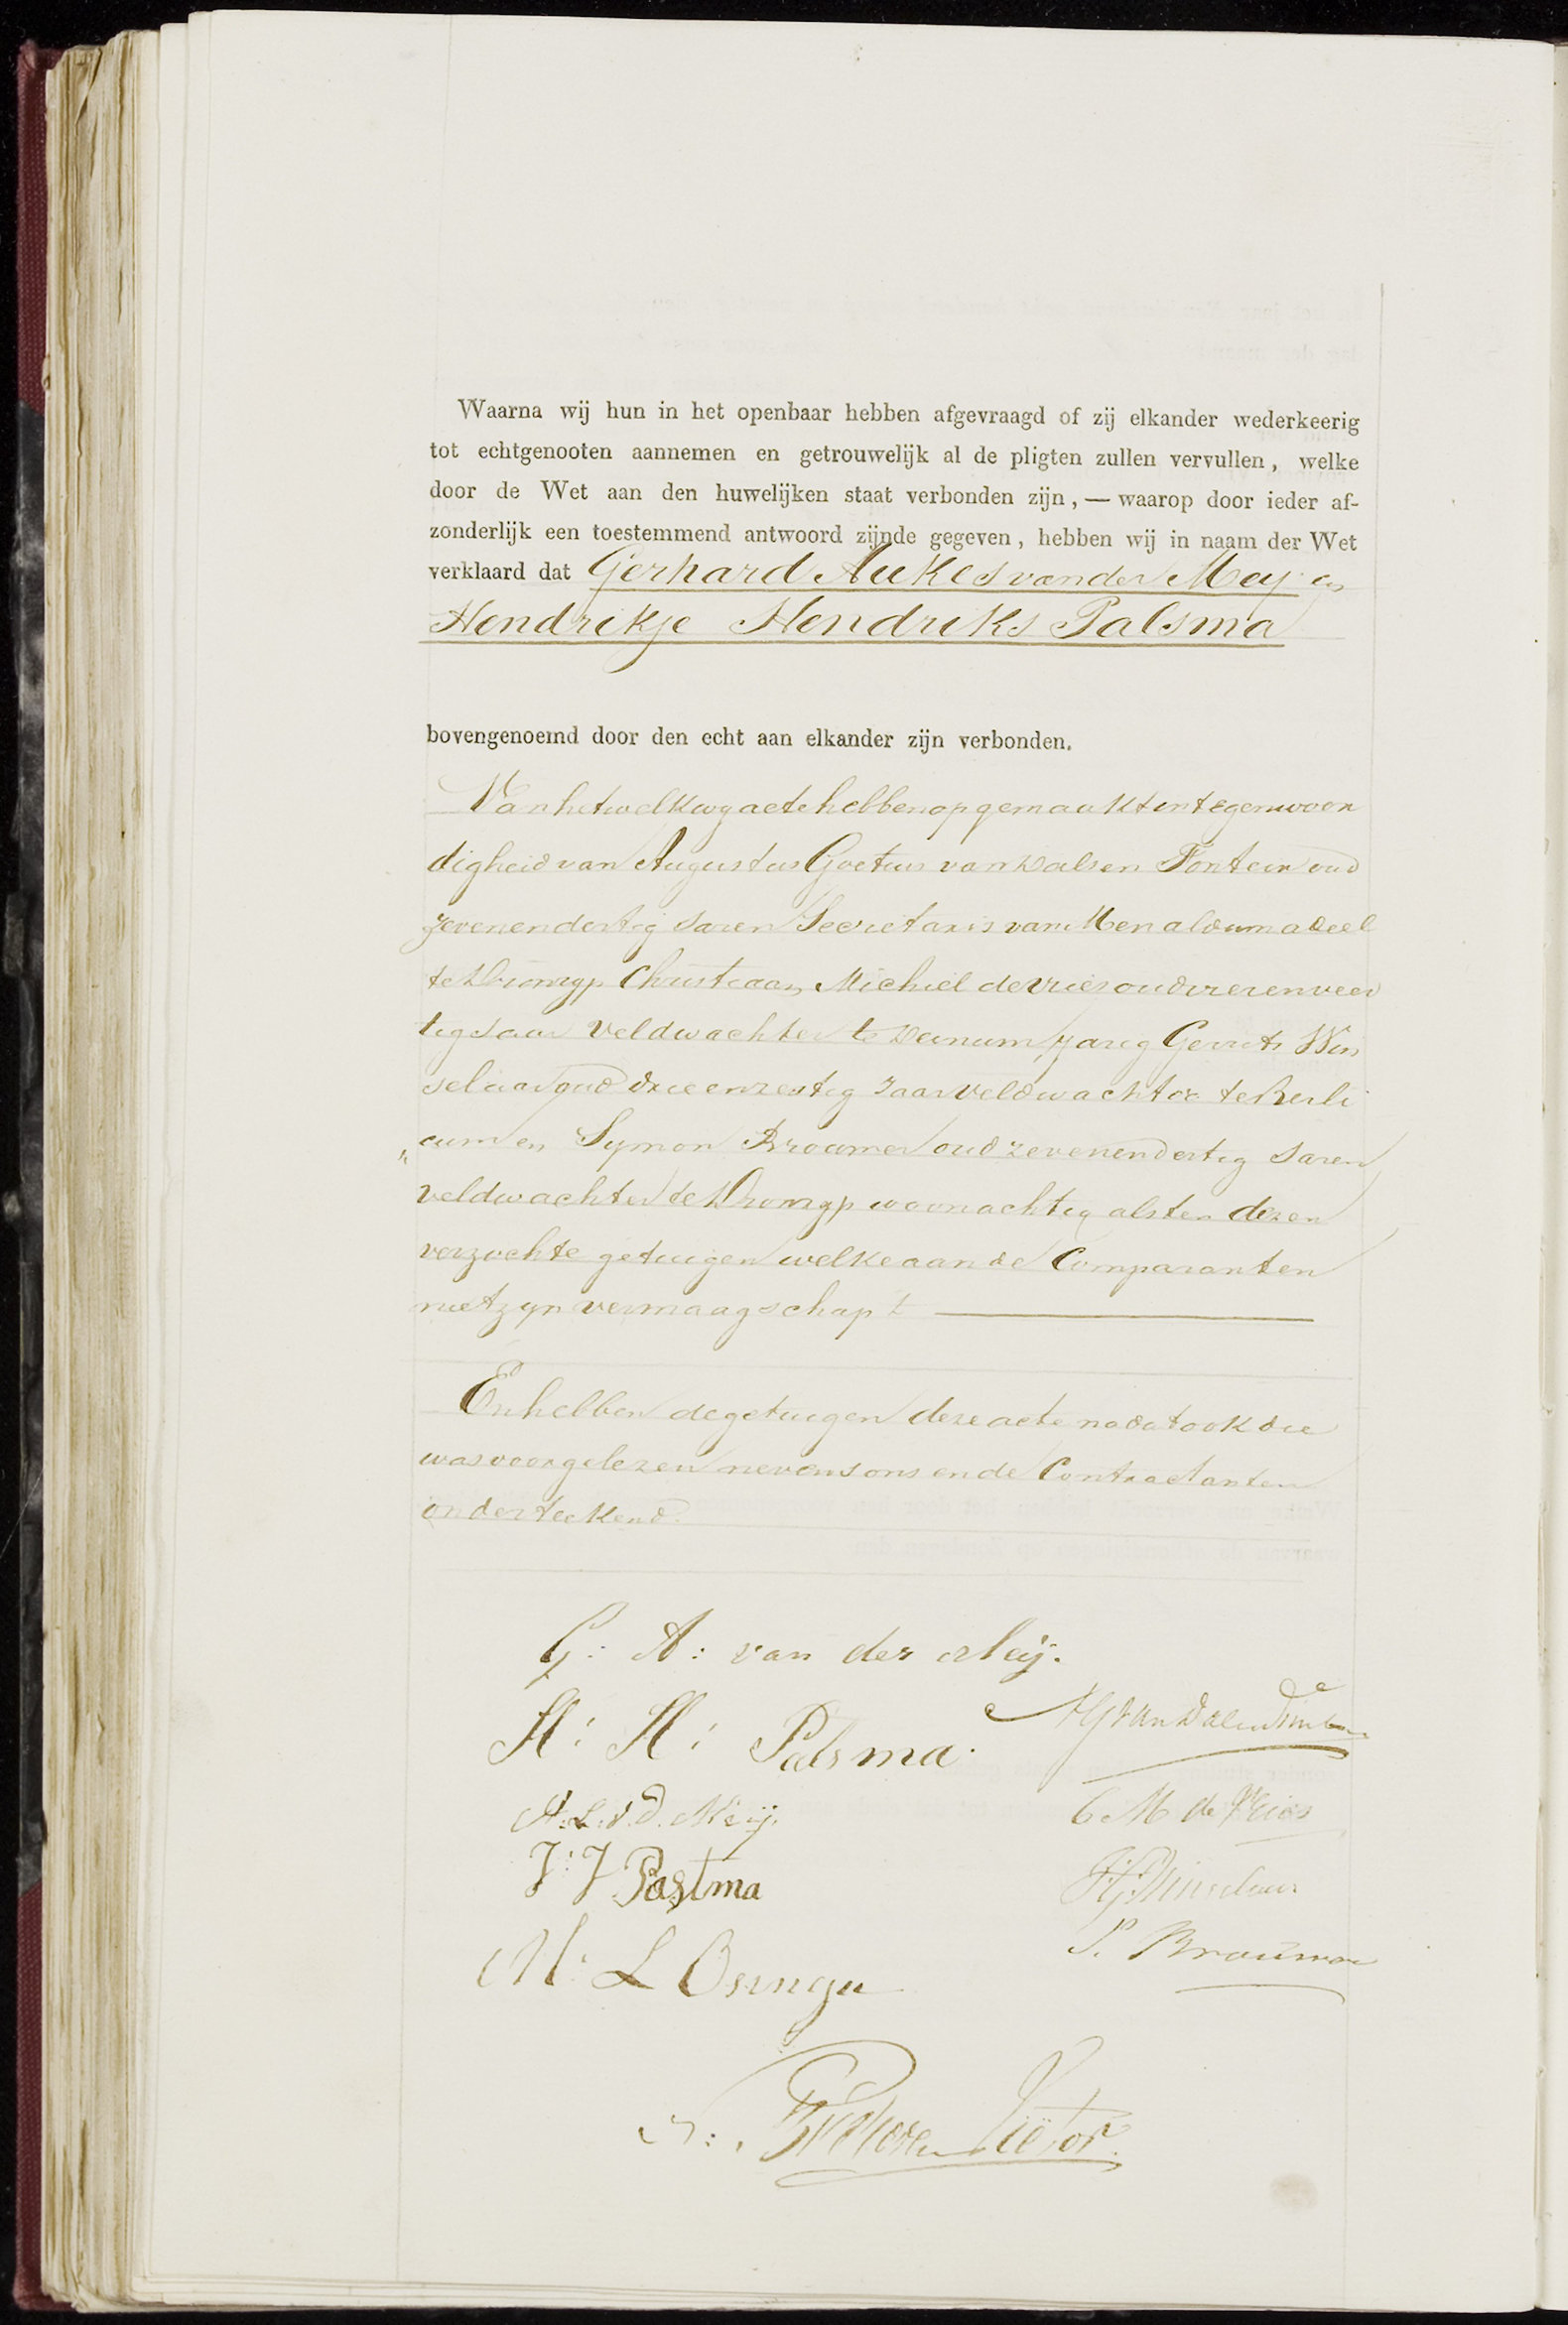 Waarna wij hun in het openbaar hebben afgevraagd of zij elkander wederkeerig
tot echtgenooten aannemen en getrouwelijk al de pligten zullen vervullen, welke
door de Wet aan den huwelijken staat verbonden zijn, — waarop door ieder af-
zonderlijk een toestemmend antwoord zijnde gegeven, hebben wij in naam der Wet
verklaard dat Gerhard Aukes van der Mey en
Hendrikje Hendriks Palsma
bovengenoemd door den echt aan elkander zijn verbonden.
Van hetwelk wy acte hebben opgemaakt in tegenwoor
digheid van Augustus Goetius van Dalsen Fontein oud
zevenendertig Jaren Secretaris van Menaldumadeel
te Dronryp Christiaan Michiel de Vries oud vierenveer
tig Jaar Veldwachter te Deinum Jarig Gerrits Win
selaar oud drieenzestig Jaar Veldwachter te Berli
„cum en Symon Brouwer oud zevenendertig Jaren
veldwachter te Dronryp woonachtig als ten dezen
verzochte getuigen welke aan de Comparanten
niet zyn vermaagschapt
En hebben de getuigen deze acte nadat ook die
was voorgelezen nevens ons en de Contractanten
onderteekend.
G: A: van der Meij.
H: H: Palsma.
A. L. v. d. Meij.
C M de Vries
J: J Postma
S. Brouwer
M: L Osinga